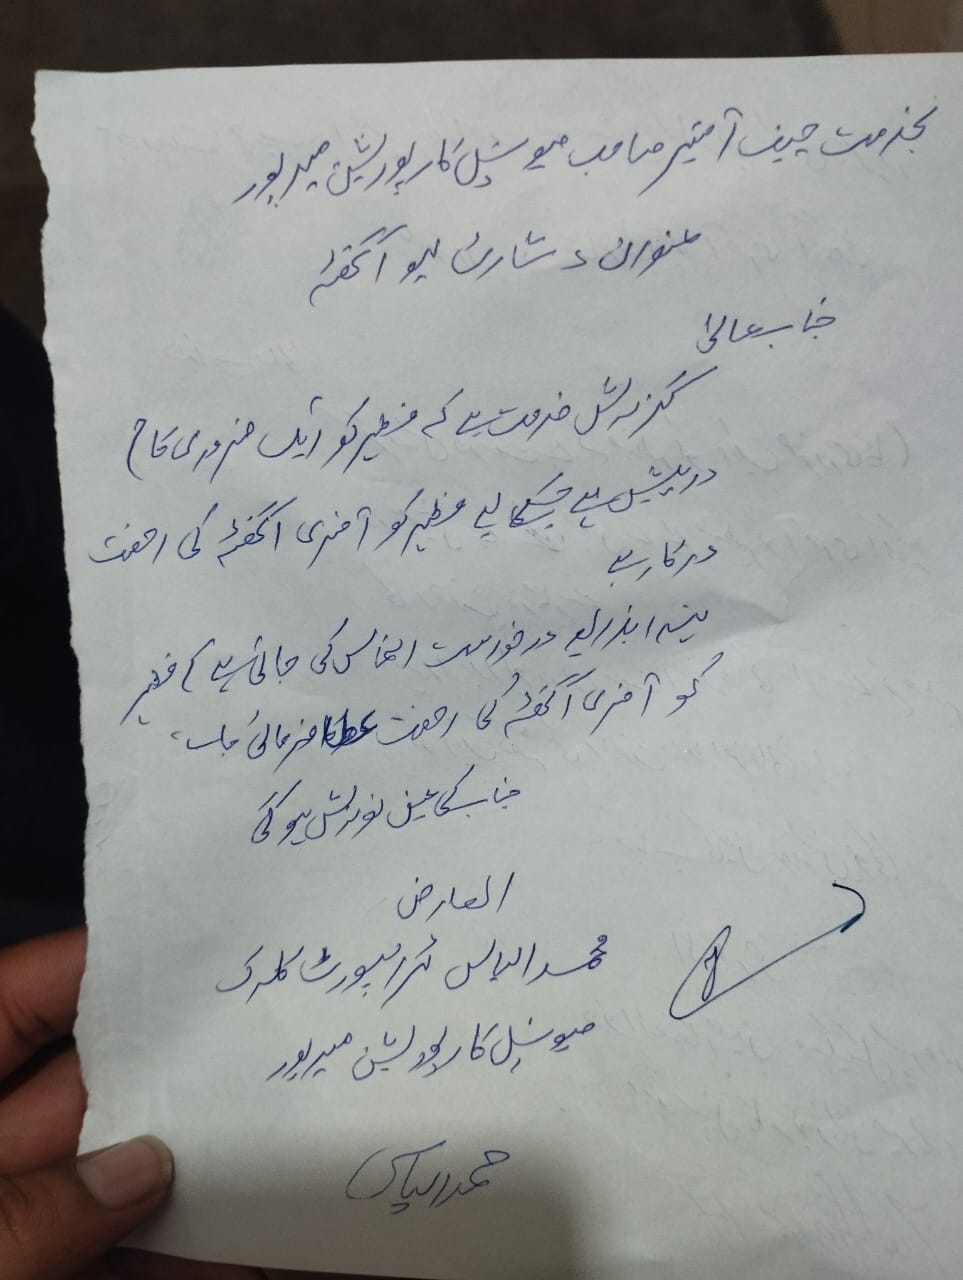 بخدمت چیف آفیسر صاحب میونسپل کارپوریشن میرپور
عنوان :
جناب عالیٰ
گزارش خدمت ہے کہ فظہر کو ایک ضروری کام
درپیش ہے جسکے لیے مظہر کو آفری اگفہ کی رخصت
درکار ہے
لہذا بذریعہ درخواست التماس کی جاتی ہے کہ
کو آفری اگفہ کی رخصت عطا فرمائی جائے
جناب کی عین نوازش ہو گی
العارض
محمد الیاس ٹرانسپورٹ کلرک
میونسپل کارپوریشن میرپور
محمد الیاس